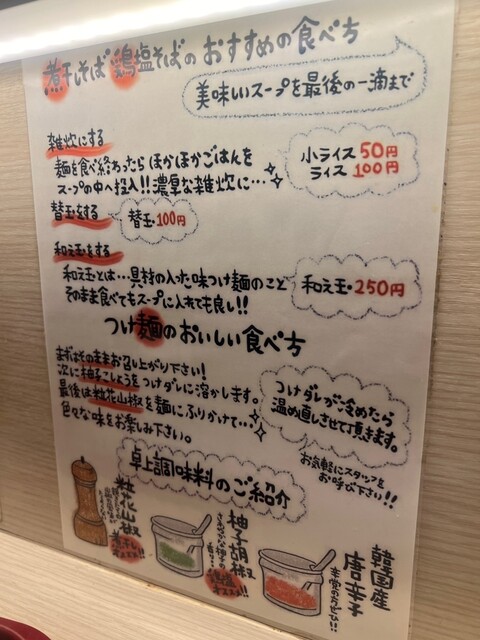 煮干しそば 鶏塩そばの おすすめの食べ方
美味しいスープを最後の一滴まで
雑炊にする
麺を食べ終わったら ほかほかごはんを
スープの中へ投入!! 濃厚な雑炊に…
小ライス 50円
ライス 100円
替玉をする
替玉 100円
和え玉をする
和え玉とは…具材の入った味つけ麺のこと
そのまま食べてもスープに入れても良し!!
和え玉・250円
つけ麺のおいしい食べ方
まずはそのままお召し上がり下さい!
次に柚子こしょうをつけダレに溶かします。
最後は粒花山椒を麺にふりかけて…
色々な味をお楽しみ下さい。
つけダレが冷めたら
温め直しさせて頂きます。
お気軽にスタッフを
お呼び下さい!!
卓上調味料のご紹介
粒花山椒
煮干し
オススメ!!
柚子胡椒
鶏塩
オススメ!!
韓国産
唐辛子
辛党の方ぜひ!!